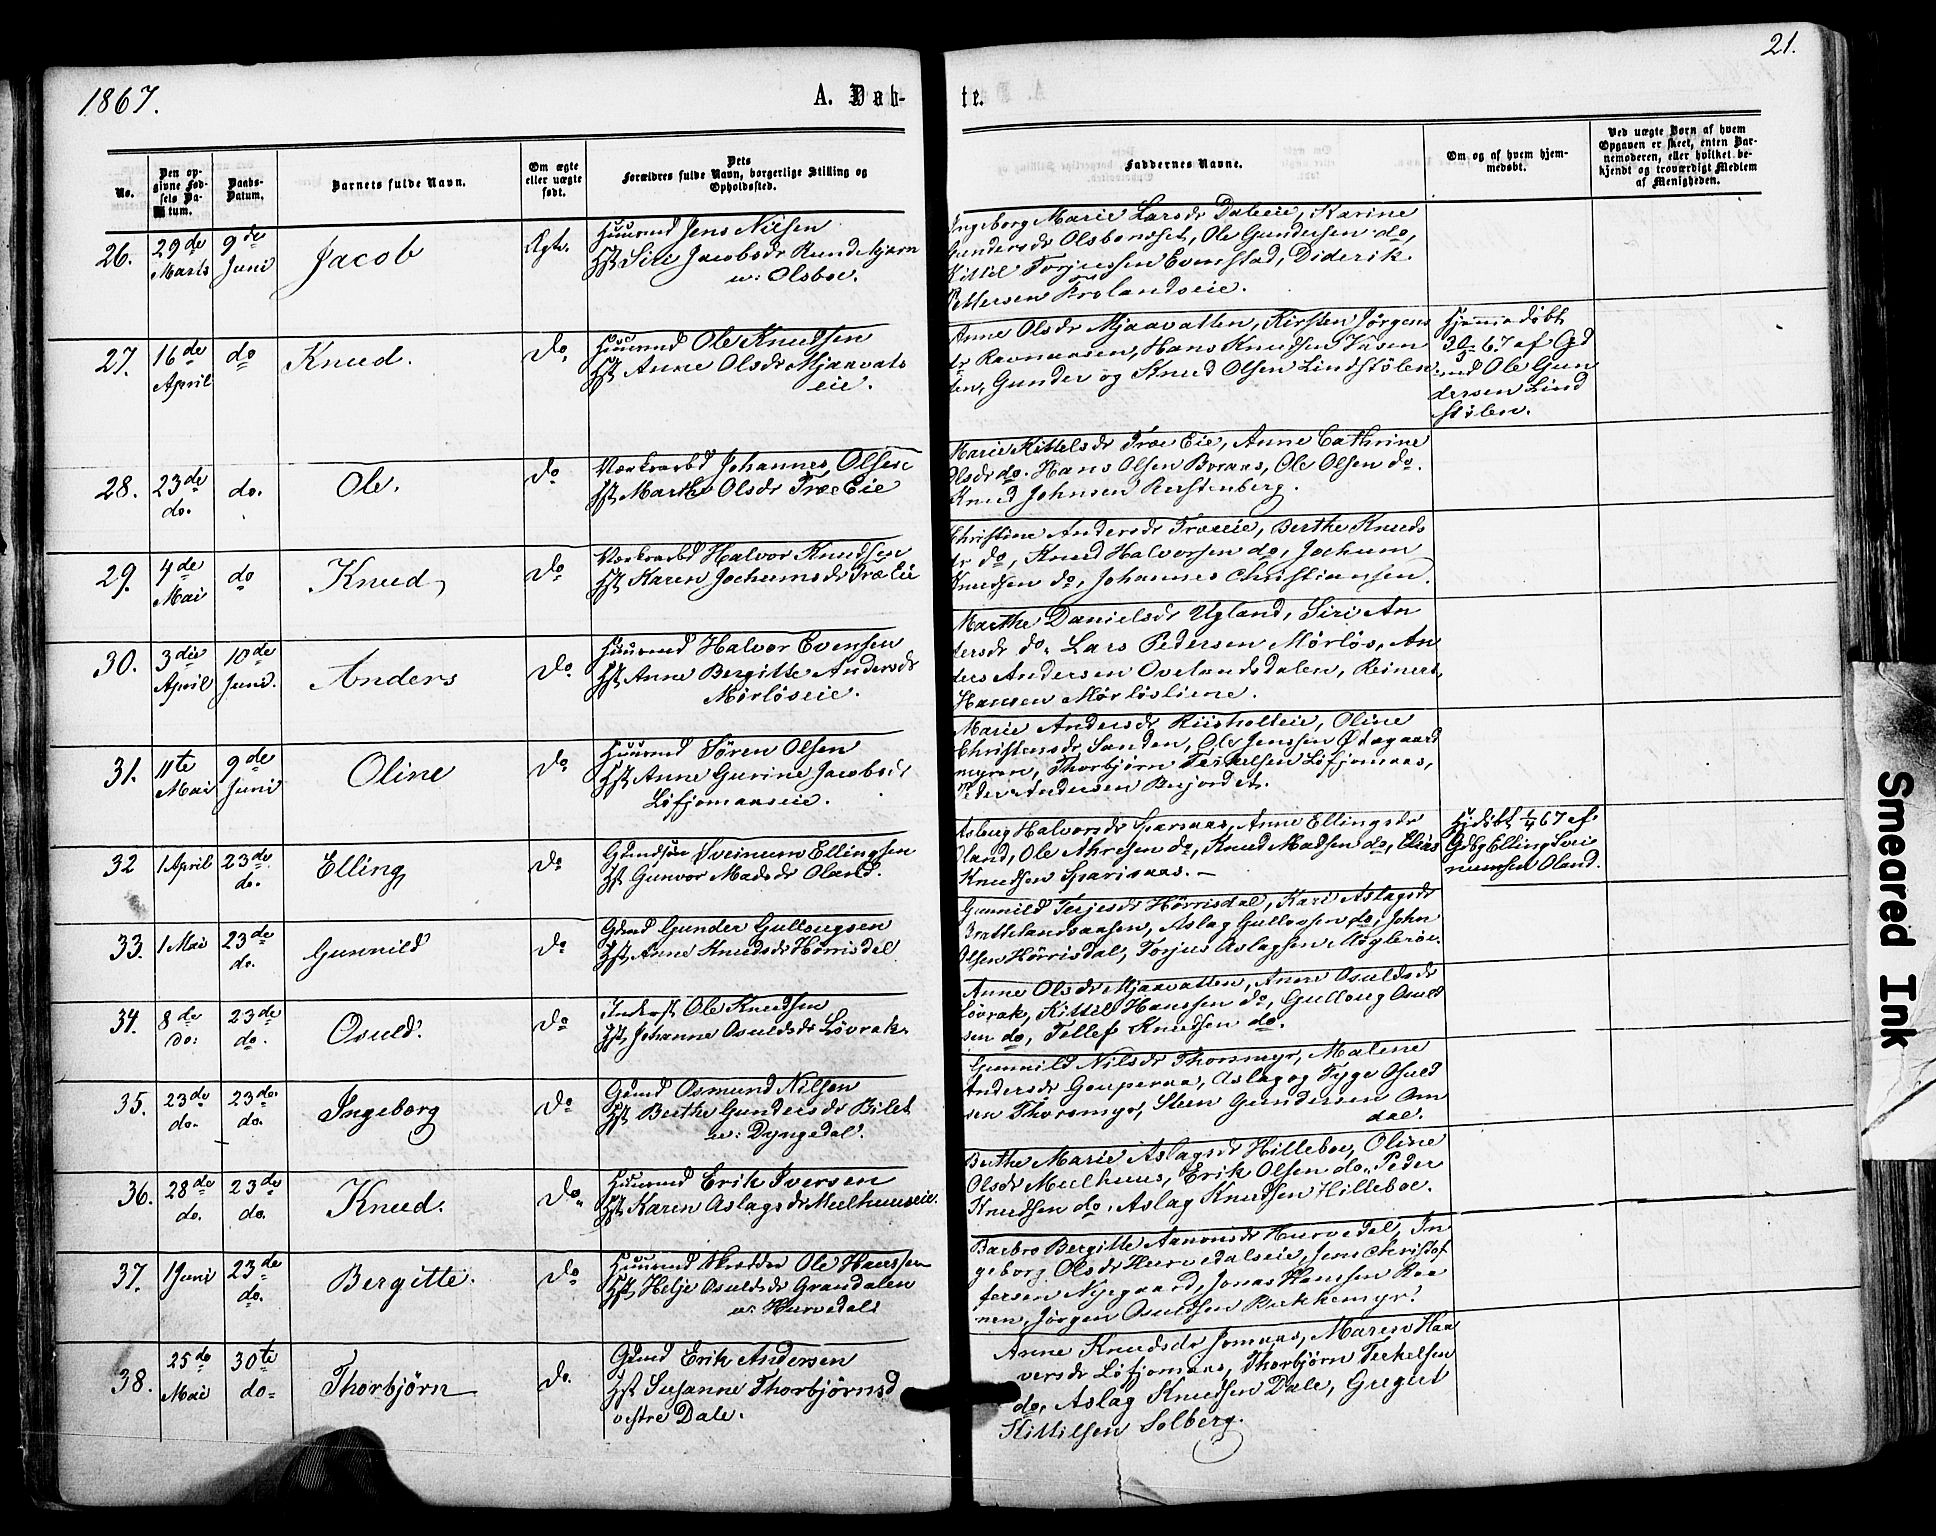 1867.
A. Døb-
te.
21.
No.
Den op-
givne Fød-
sels Da-
tum.
Daabs-
Datum.
Barnets fulde Navn.
Om ægte
eller uægte
født.
Dets
Forældres fulde Navn, borgerlige Stilling og
Opholdssted.
Faddernes Navne.
Om og af hvem hjem-
medøbt.
Ved uægte Børn af hvem
Opgaven er skeet, enten Bar-
nemoderen, eller hvilket be-
kjendt og troværdigt Medlem
af Menigheden.
26.
29de
Marts
9de
Juni
Jacob
Ægte.
Huusmd Jens Nilsen
Hst Sile Jacobsdr
u: Olsboe.
Ingeborg Marie Larsdr Daleeie, Karine
Gundersdr Olsboneset, Ole Gundersen do,
Kittil Torjussen Evenstad, Diderik
Pettersen Frolandseie.
27.
16de
April
do
Knud.
do
Huusmd Ole Knudsen
Hst Anne Olsdr Mjaavats
eie.
Anne Olsdr Mjaavatten, Kirsten Jørgens
dr Ravnaasen, Hans Knudsen Vasen
den, Gunder og Knud Olsen Lindstølen
Hjemmedøbt
67 af Gd
md Ole Gun
dersen Lind
stølen.
28.
23de
do.
do.
Ole.
do
Værksarbd Johannes Olsen
Hst Marthe Olsdr Træ Eie
Marie Kittelsdr Træ Eie, Anne Cathrine
Olsdr do. Hans Olsen Boraas, Ole Olsen do.
Knud Johnsen Rerstenberg.
29.
4de
Mai
do
Knud
do
Værksarbd Halvor Knudsen
Hst Karen Jochumsdr Træ Eie
Christine Andersdr Træeie, Berthe Knuds
dr do, Knud Halvorsen do, Jochum
Knudsen do, Johannes Christiansen.
30.
3die
April
10de
Juni.
Anders
do
Huusmd Halvor Evensen
Hst Anne Bergitte Andersdr
Mørløseie.
Marthe Danielsdr Ugland, Siri An
dersdr do. Lars Pedersen Mørløs, An
ders Andersen Ovelandsdalen, Reinert
Hansen Mørløsliene.
31.
11te
Mai
9de
Juni
Oline
do
Huusmd Søren Olsen
Hst Anne Gurine Jacobsdr
Løfjomaaseie.
Marie Andersdr Riisholteie, Oline
Christensdr Sanden, Ole Jenssen Ødegaard
myren, Thorbjørn Terkelsen Løfjomaas,
Peder Andersen Berjordet.
32
1 April
23de
do.
Elling
do
Gdmdsøn Sveinum Ellingsen
Hst Gunvor Madsdr Oland.
Aslaug Halvorsdr Sparsaas, Anne Ellingsdr
Oland, Ole Ahresen do, Knud Madsen do, Elias
Knudsen Sparsaas.
Hjdøbt 1/4 67 af
Gdbg Elling Svei
numsen Oland.
33.
1 Mai
23de
do.
Gunnild
do
Gdmd Gunder Gullougsen
Hst Anne Knudsdr Hørrisdal
Gunnild Terjesdr Hørrisdal, Kari Aslagsdr
Brattelandsaasen, Aslag Gullovsen do, John
Olsen Hørrisdal, Torjus Aslagsen Møglerøe.
34.
8de
do:
23de
do.
Osuld.
do
Inderst Ole Knudsen
Hst Johanne Osuldsdr Løvrak.
Anne Olsdr Mjaavatten, Anne Osuldsdr
Løvrak, Kittil Hanssen do, Gulloug Osuld
sen do, Tellef Knudsen do.
35.
23de
do.
23de.
do.
Ingeborg
do
Gdmd Osmund Nilsen
Hst Berthe Gundersdr Bilet
u: Dyngedal.
Gunnild Nilsdr Thorsmyr, Malene
Andersdr Gauperaa, Aslag og Tyge Osuld
sen Thorsmyr, Steen Gundersen Om
dal.
36.
28de
do.
23de
do.
Knud.
do.
Huusmd Erik Iversen
Hst Karen Aslagsdr Mulhuuseie.
Berthe Marie Aslagsdr Hilleboe, Oline
Olsdr Mulhuus, Erik Olsen do. Peder
Knudsen do, Aslag Knudsen Hilleboe.
37.
1 Juni
23de
do.
Bergitte.
do
Huusmd Skrædder Ole Hanssen
Hst Helje Osuldsdr Grandalen
u: Hurvedals
Barbro Bergitte Aanonsdr Hurvedal, In
geborg Olsdr Hurvedalseie, Jens Christof
fersen Nyegaard, Jonas Hanssen Raa
nen, Jørgen Osuldsen Bækkemyr.
38.
25de
Mai
30te
do.
Thorbjørn
do.
Gdmd Erik Andersen
Hst Susanne Thorbjørnsd
vestre Dale.
Anne Knudsdr Jomaas, Maren Haa
versdr Løfjomaas, Thorbjørn Terkelsen
do, Aslag Knudsen Dale, Gregert
Kittilsen Solberg.
Smeared Ink